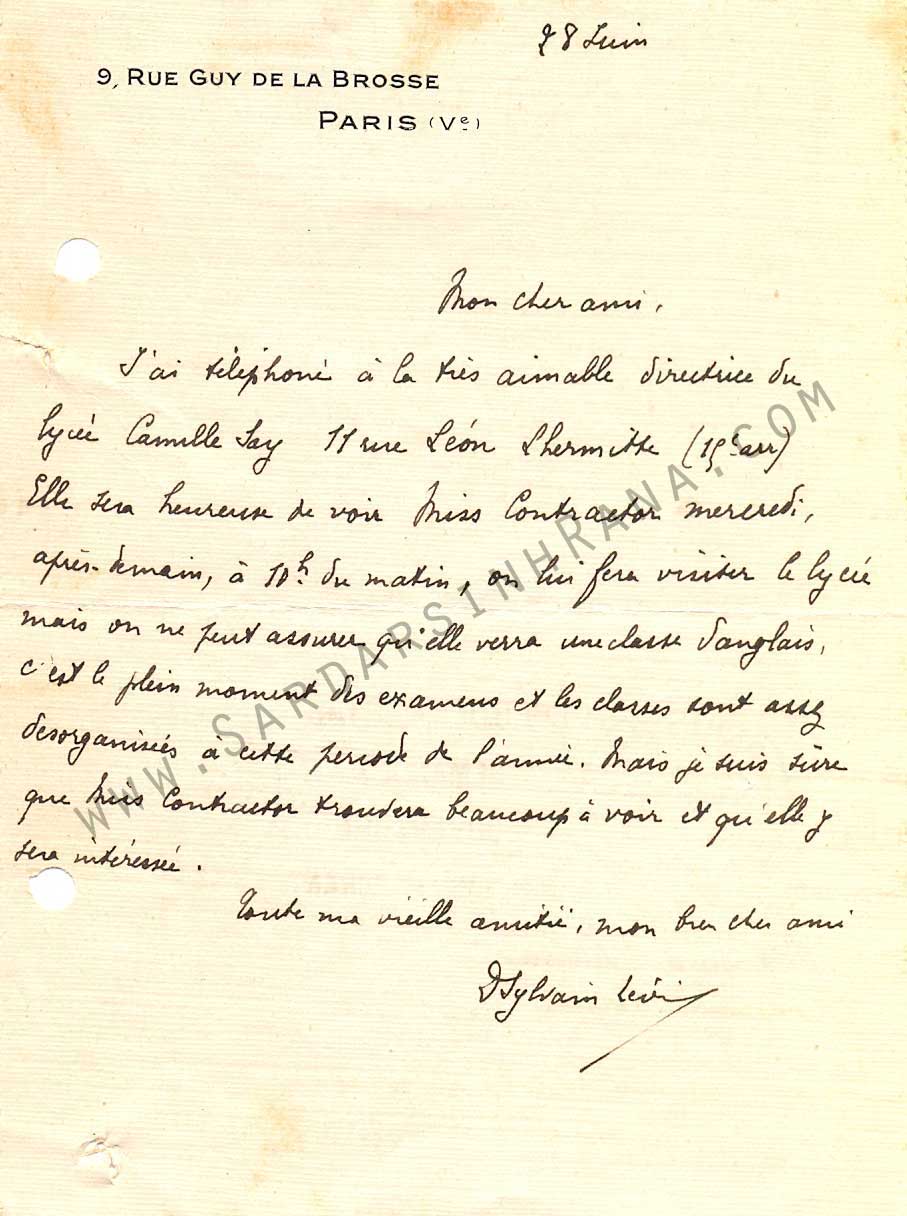 28 Juin
9, RUE GUY DE LA BROSSE
PARIS (Ve)
Mon cher ami,
J'ai téléphoné à la très aimable directrice du
lycée Camille Say 11 rue Léon Lhermitte (15e arr)
Elle sera heureuse de voir Miss Contractor mercredi,
après-demain, à 10h. du matin, on lui fera visiter le lycée
mais on ne peut assurer qu'elle verra une classe d'anglais,
c'est le plein moment des examens et les classes sont assez
désorganisées à cette période de l'année. Mais je suis sûre
que Miss Contractor trouvera beaucoup à voir et qu'elle y
sera intéressée.
Toute ma vieille amitié, mon bien cher ami
DSylvain Lévi
WWW.SARDARSINHRANA.COM